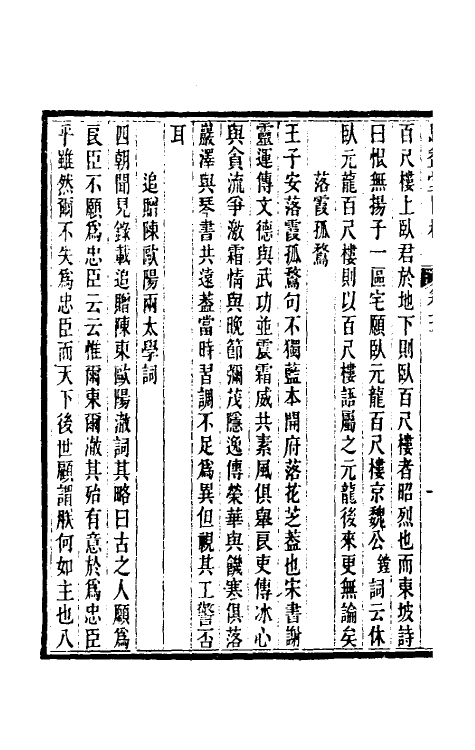 百尺樓上臥君於地下則臥百尺樓者昭烈也而東坡詩
曰恨無揚子一區宅願臥元龍百尺樓京魏公鏜詞云休
臥元龍百尺樓則以百尺樓語屬之元龍後來更無論矣
落霞孤鶩
王子安落霞孤鶩句不獨藍本開府落花芝蓋也宋書謝
靈運傳文德與武功並震霜威共素風俱舉良吏傳冰心
與貪流爭激霜情與晚節彌茂隱逸傳榮華與饑寒俱落
巖澤與琴書共遠蓋當時習調不足爲異但視其工警否
耳
追贈陳歐陽兩太學詞
四朝聞見錄載追贈陳東歐陽澈詞其略曰古之人願爲
良臣不願爲忠臣云云惟爾東爾澈其殆有意於爲忠臣
乎雖然爾不失爲忠臣而天下後世顧謂朕何如主也八